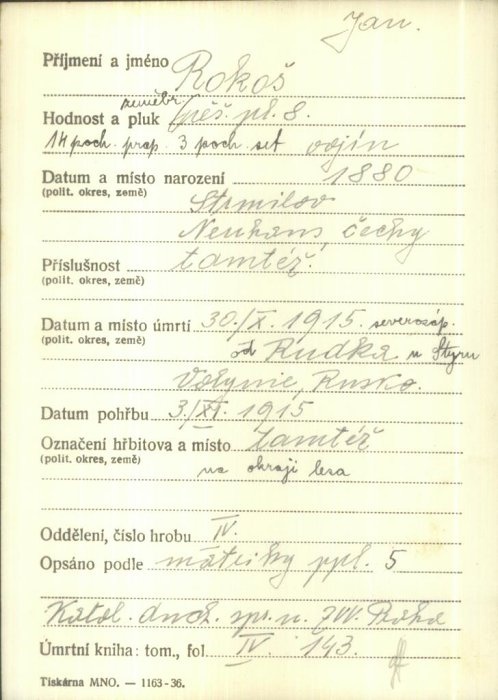 Jan.
Příjmení a jméno Rokoš
zeměbr.
Hodnost a pluk pěš. pl. 8.
14 poch. prap. 3 poch. set vojín
Datum a místo narození 1880
(polit. okres, země)
Strmilov
Neuhaus, Čechy
Příslušnost tamtéž.
(polit. okres, země)
Datum a místo úmrtí 30./X. 1915. severozáp.
(polit. okres, země)
od Rudka u Styru
Volynie, Rusko.
Datum pohřbu 3./XI. 1915
Označení hřbitova a místo tamtéž
(polit. okres, země)
na okraji lesa
Oddělení, číslo hrobu IV.
Opsáno podle matriky ppl. 5
Katol. duch. spr. u ZVV. Praha
Úmrtní kniha: tom., fol. IV. 143.
Tiskárna MNO. — 1163-36.